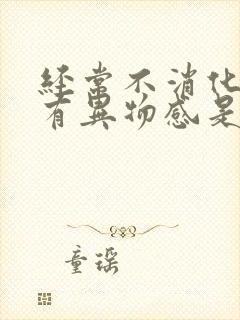 經常不消化
有異物感是
童瑶